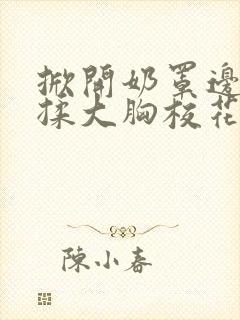 掀開奶罩邊
揉大胸校花
陳小春